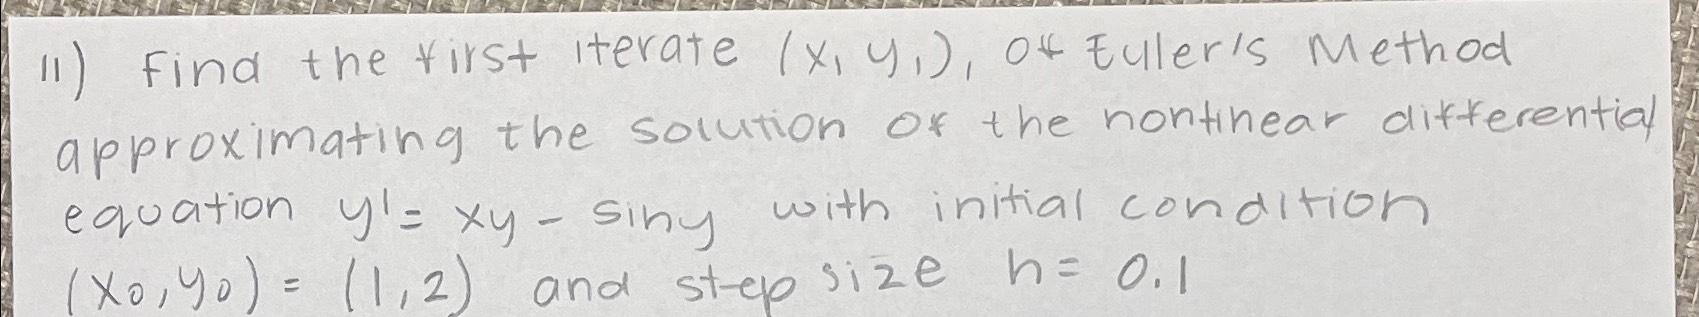 11) Find the first iterate (x₁ y₁), of Euler's Method
approximating the solution of the nonlinear differential
equation y' = xy - siny with initial condition
(x₀, y₀) = (1,2) and step size h = 0.1